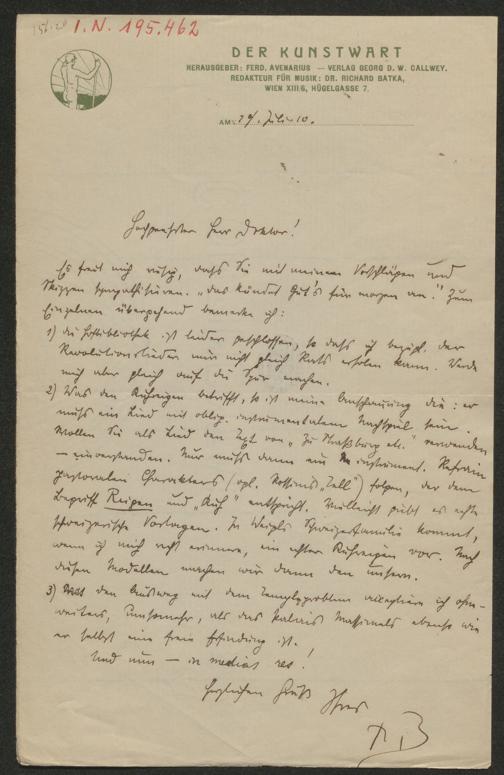 156/20 I.N. 195.462
DER KUNSTWART
HERAUSGEBER: FERD. AVENARIUS — VERLAG GEORG D. W. CALLWEY.
REDAKTEUR FÜR MUSIK: DR. RICHARD BATKA,
WIEN XIII/6, HÜGELGASSE 7.
AM 29. Juli 10.
Hochverehrter Herr Doktor!
Es freut mich riesig, dass Sie mit meinen Vorschlägen und
Skizzen sympathisieren. „Das kündet Gut's für morgen an." Zum
Einzelnen übergehend bemerke ich:
1) die Hofbibliothek ist leider geschlossen, so dass ich bezügl. der
Revolutionslieder nun nicht gleich Rats erholen kann. Werde
mich aber gleich auf die Spur machen.
2) Was den Kuhreigen betrifft, so ist meine Anschauung die: er
muss ein Lied mit oblig. instrumentalem Nachspiel sein.
Wollen Sie als Lied den Text von „Zu Straßburg etc." verwenden
— einverstanden. Nur muss dann ein instrument. Refrain
pastoralen Charakters (vgl. Rossinis „Tell") folgen, der dem
Begriffe Reigen und „Kuh" entspricht. Vielleicht gibt es echte
schweizerische Vorlagen. In Weigls Schweizerfamilie kommt,
wenn ich mich recht erinnere, ein echter Kuhreigen vor. Nach
diesen Modellen machen wir dann den unsern.
3) den Ausweg mit dem Templeproblem akzeptiere ich ohne
weiters, umsomehr, als das Palais Massimels ebenso wie
er selbst eine freie Erfindung ist.
Und nun — in medias res!
Herzlichen Gruß Ihres
RB